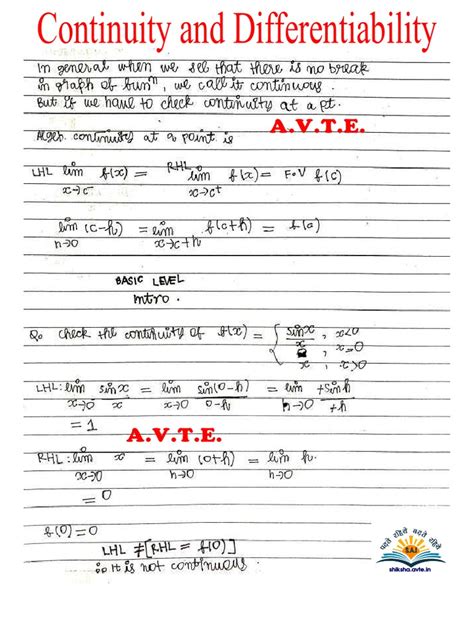 Continuity and Differentiability
In general when we see that there is no break
in graph of funⁿ, we call it continuous.
But if we have to check continuity at a pt.
A.V.T.E.
Algeb. continuity at a point is
LHL lim f(x) = RHL lim f(x) = F.V f(c)
x→c⁻ x→c⁺
lim (c-h) = lim f(c+h) = f(a)
h→0 x→c+h
BASIC LEVEL
Intro.
Q. Check the continuity of f(x) = { sinx/x , x<0
, x=0
x , x>0
LHL: lim sinx/x = lim sin(0-h)/0-h = lim +sinh/+h
x→0 x→0 h→0
= 1
A.V.T.E.
RHL: lim x = lim (0+h) = lim h.
x→0 h→0 h→0
= 0
f(0) = 0
LHL ≠ [RHL = f(0)]
∴ It is not continuous.
पढ़ते रहिये बढ़ते रहिये
S.A.I
shiksha.avte.in